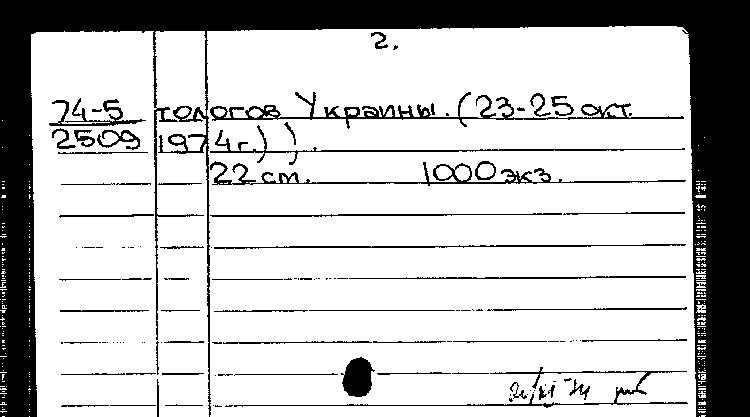 2.
74-5 тологов Украины. (23-25 окт.
2509 1974г.) ).
22 см. 1000 экз.